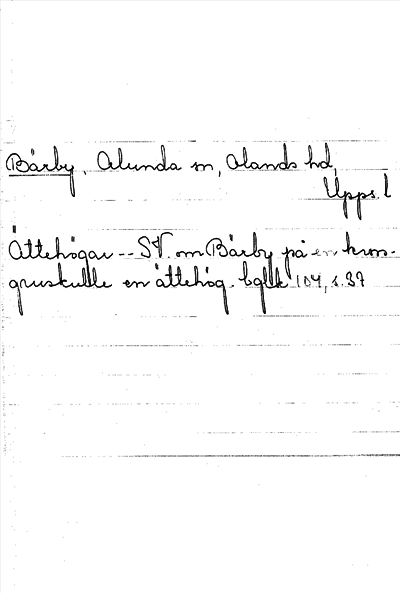 Bärby, Alunda sn, Olands hd,
Upps. l
Ättehögar -- SV. om Bärby på en kros-
gruskulle en ättehög. bglk 104, s. 37